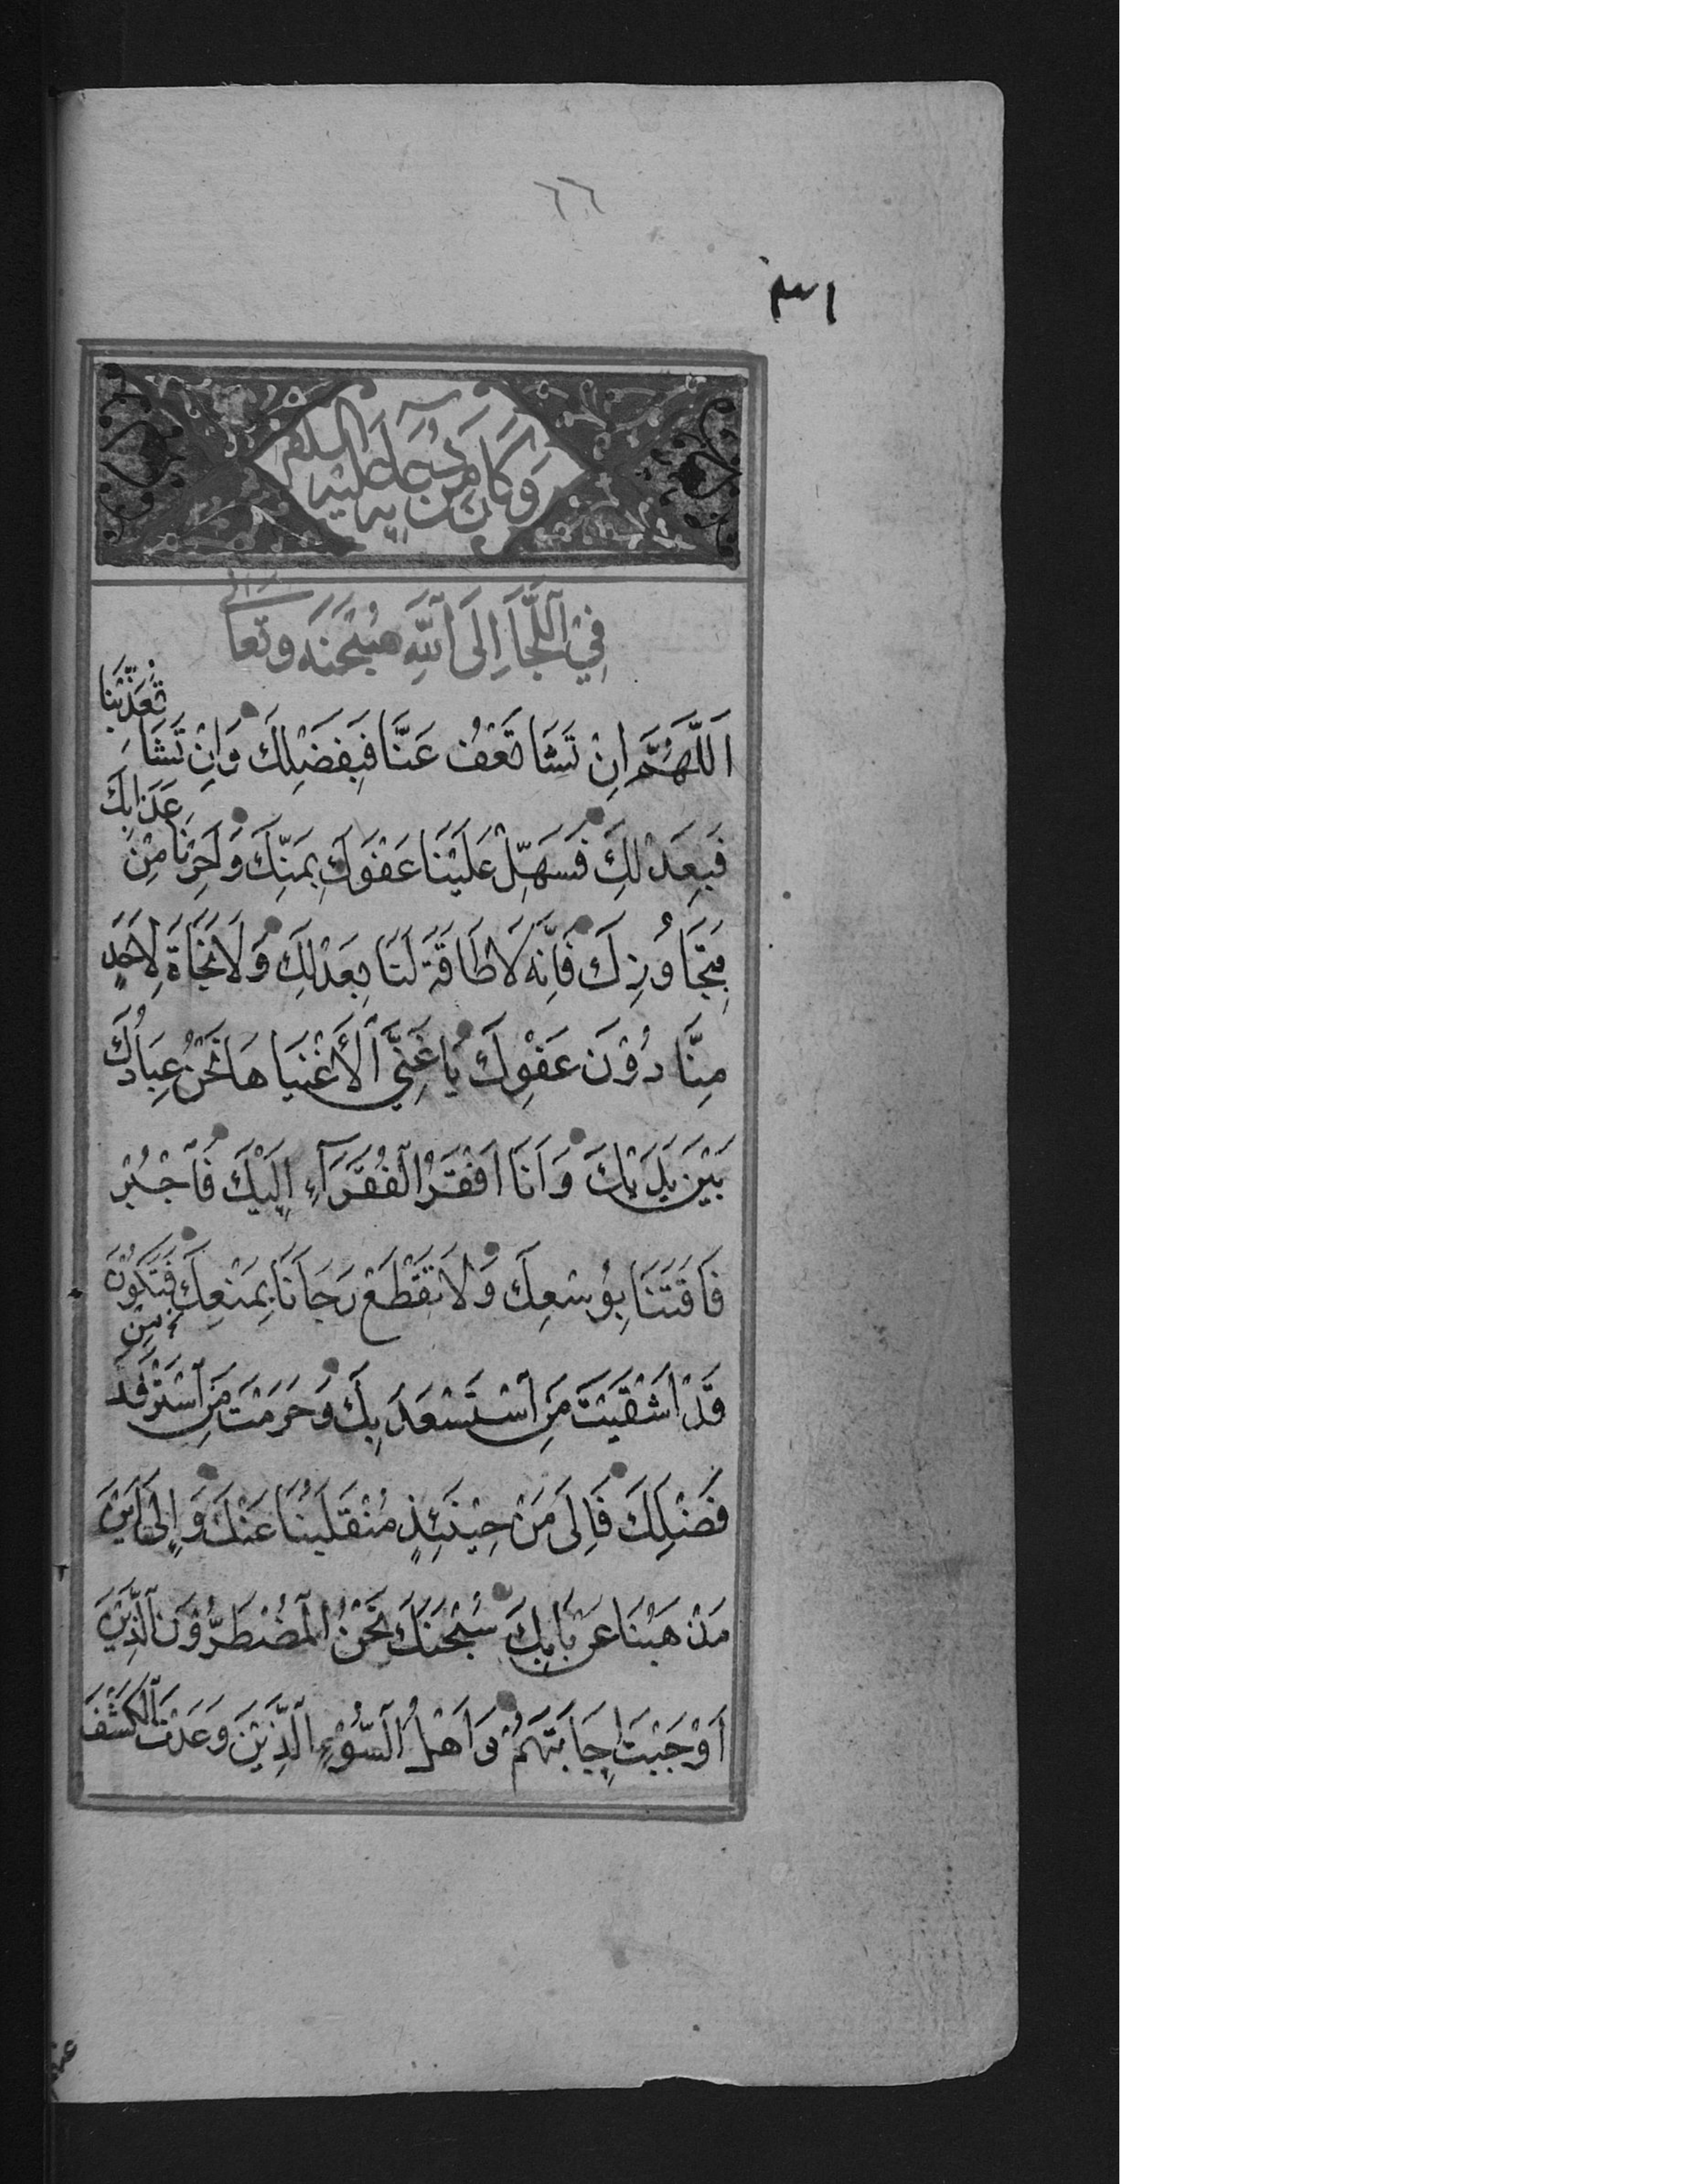 ٦٦
٣١
وَكَانَ مِنْ دُعَائِهِ عَلَيْهِ السَّلَمُ
فِي اللَّجَإِ إِلَى اللهِ سُبْحَنَهُ وَتَعَالى
اَللَّهُمَّ اِنْ تَشَا تَعْفُ عَنَّا فَبِفَضْلِكَ وَاِنْ تَشَاَ تُعَذِّبْنَا
فَبِعَدْلِكَ فَسَهِّلْ عَلَيْنَا عَفْوَكَ بِمَنِّكَ وَاَجِرْنَا مِنْ عَذَابِكَ
بِتَجَاوُزِكَ فَاِنَّهُ لَا طَاقَةَ لَنَا بِعَدْلِكَ وَلَا نَجَاةَ لِاَحَدٍ
مِنَّا دُوْنَ عَفْوِكَ يَا غَنِيَّ الْأَغْنِيَا هَا نَحْنُ عِبَادُكَ
بَيْنَ يَدَيْكَ وَاَنَا اَفْقَرُ الْفُقَرَآءِ اِلَيْكَ فَاجْبُرْ
فَاقَتَنَا بِوُسْعِكَ وَلَا تَقْطَعْ رَجَاَنَا بِمَنْعِكَ فَتَكُوْنَ
قَدْ اَشْقَيْتَ مَنِ اسْتَسْعَدَ بِكَ وَحَرَمْتَ مَنِ اسْتَرْفَدَ
فَضْلَكَ فَاِلَى مَنْ حِيْنَئِذٍ مُنْقَلَبُنَا عَنْكَ وَاِلَى اَيْنَ
مَذْهَبُنَا عَنْ بَابِكَ سُبْحَنَكَ نَحْنُ الْمُضْطَرُّوْنَ الَّذِيْنَ
اَوْجَبْتَ اِجَابَتَهُمْ وَاَهْلُ السُّوْءِ الَّذِيْنَ وَعَدْتَ الْكَشْفَ